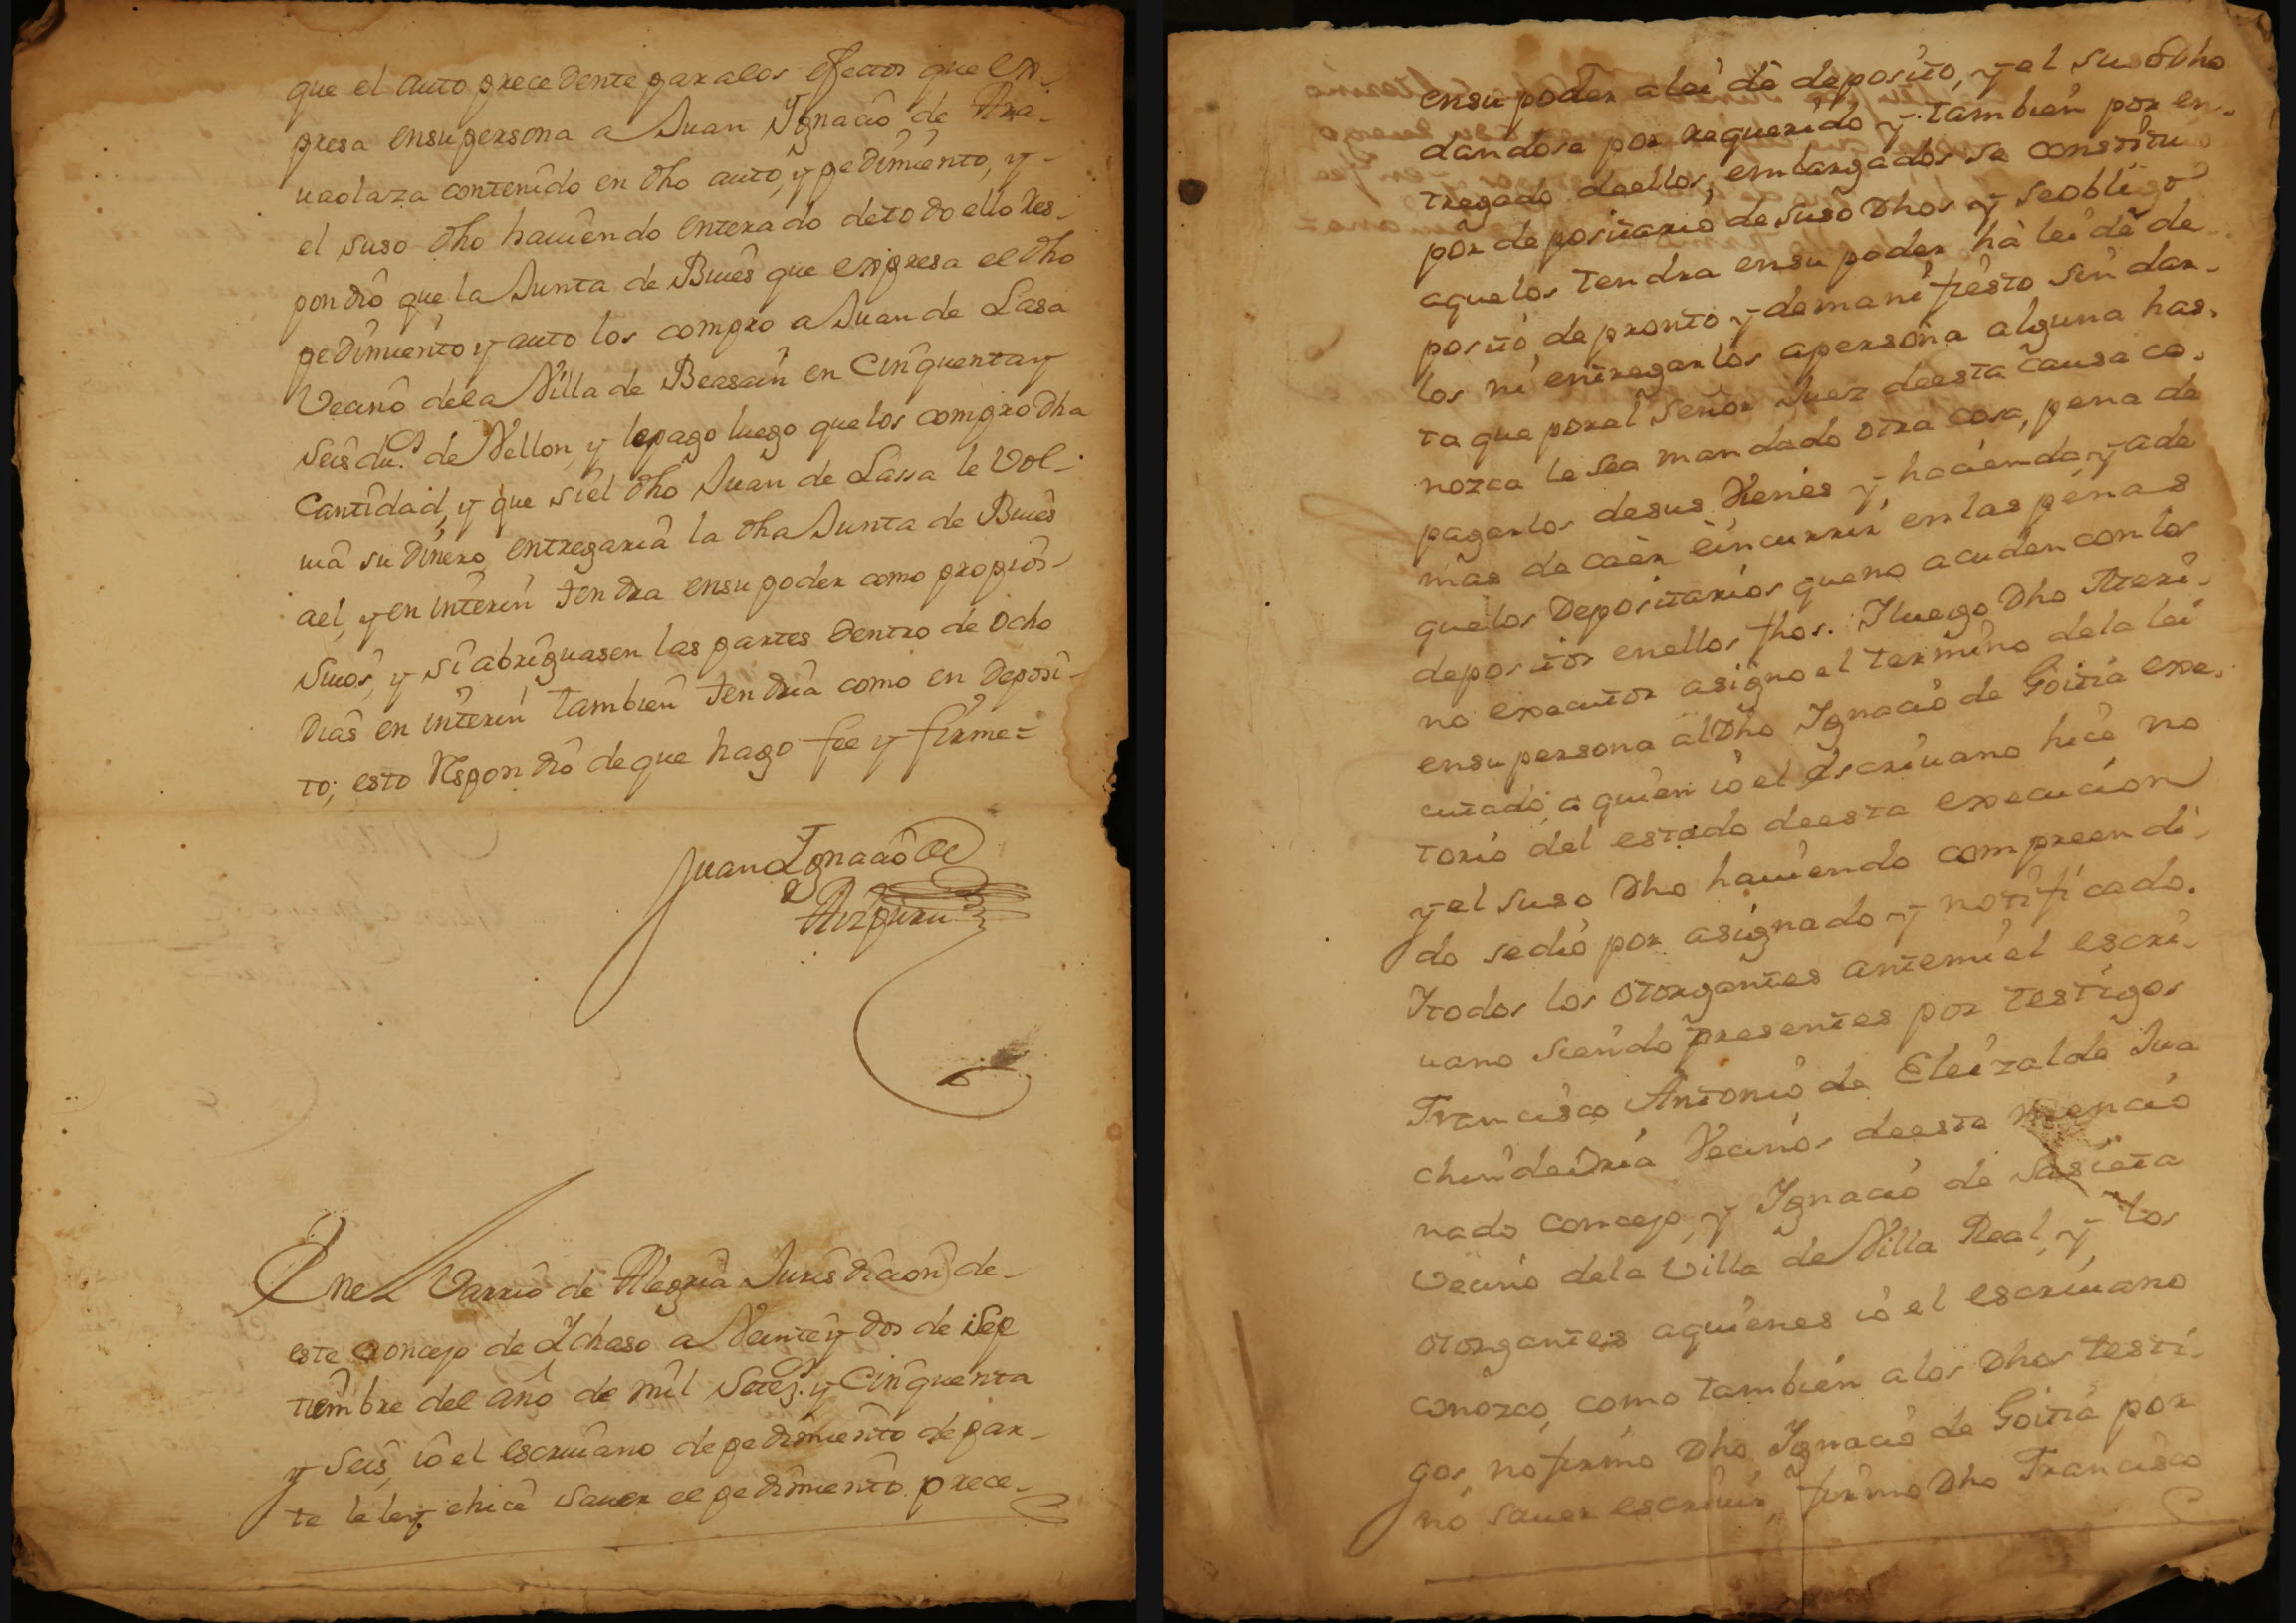 que el auto precedente para los efectos que ex-
presa en su persona a Juan Ygnacio de Ara-
uaolaza contenido en dho auto, y pedimiento, y
el suso dho hauiendo enterado de todo ello Res-
pondio que la Junta de Bueis que expresa el dho
pedimiento y auto los compro a Juan de Lasa
Vecino de la Villa de Beasain en Cinquenta y
seis du.s de Vellon, y le pago luego que los compro dha
Cantidad, y que si el dho Juan de Lassa le Vol-
uia su dinero entregaria la dha Junta de Bueis
a el, y en interin tendra en su poder como propios
suios, y si abriguasen las partes dentro de ocho
dias en interin tambien tendria como en deposi-
to; esto Respondio de que hago fee y firme=
Juan Ygnacio de
Aizpuru
En el Varrio de Alegria Jurisdicion de
este Concejo de Ichaso a Veinte y dos de Sep
tiembre del año de mil Setez.s y Cinquenta
y Seis, io el escriuano de pedimiento de par-
te le ley e hice sauer el pedimiento prece-
en su poder a lei de deposito, y el suso dho
dandose por requerido y tambien por en-
tregado de ellos, embargados se constitu
por depositario de suso dhos y se obligo
aquelos tendra en su poder hà lei de de
posito, de pronto y de manifiesto sin dar-
los ni entregarlos a persona alguna has-
ta que por el señor Juez de esta causa co-
nozca le sea mandado otra cosa, pena de
pagarlos de sus Vienes y hacienda, y ade
mas de caèr è incurrir en las penas
que los Depositarios que no acuden con los
depositos en ellos fhos. Y luego dho Meri-
no executor asigno el termino de la lei
en su persona al dho Ygnacio de Goitia exe-
cutado, a quien io el escriuano hice no
torio del estado de esta execucion
y el suso dho hauiendo compreendi-
do se dio por asignado y notificado.
Y todos los otorgantes ante mi el escri-
uano siendo presentes por testigos
Francisco Antonio de Eleizalde Jua
chindeiria Vecinos de este
nado concejo, y Ygnacio de Sasieta
Vecino de la Villa de Villa Real, y los
otorgantes a quienes io el escriuano
conozco, como tambien a los dhos testi-
gos, no firmo dho Ygnacio de Goitia por
no sauer escriuir, firmo dho Francisco